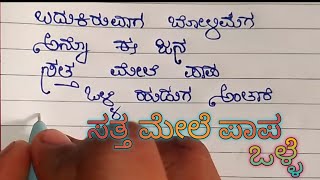 ಬದುಕಿರುವಾಗ ಬೋಳಿಮಗ
ಅನ್ನೊ ಈ ಜನ
ಸತ್ತ ಮೇಲೆ ಪಾಪ
ಒಳ್ಳೆ ಹುಡುಗ ಅಂತಾರೆ
ಸತ್ತ ಮೇಲೆ ಪಾಪ
ಒಳ್ಳೆ